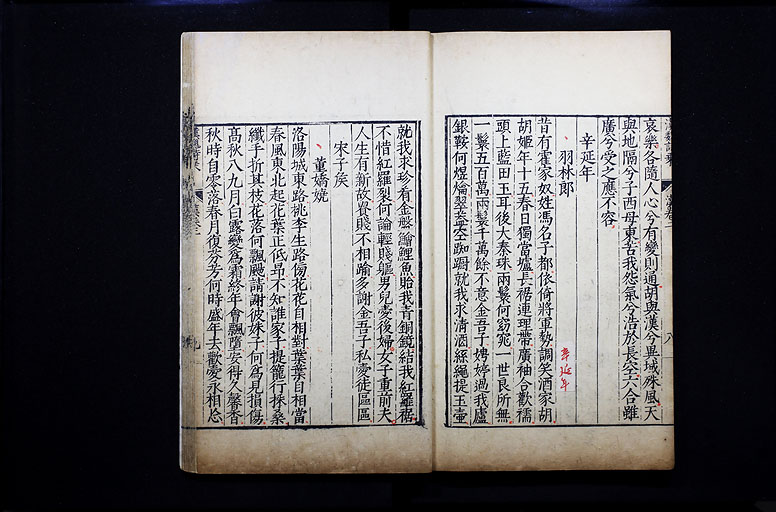 哀樂各隨人心兮有變則通胡與漢兮異域殊風天
與地隔兮子西母東苦我怨氣兮浩於長空六合雖
廣兮受之應不容
辛延年
羽林郎
辛延年
昔有霍家奴姓馮名子都依倚將軍勢調笑酒家胡
胡姬年十五春日獨當壚長裾連理帶廣袖合歡襦
頭上藍田玉耳後大秦珠兩鬟何窈窕一世良所無
一鬟五百萬兩鬟千萬餘不意金吾子娉婷過我廬
銀鞍何煜爚翠葢空踟蹰就我求清酒絲繩提玉壷
就我求珍肴金盤鱠鯉魚貽我青銅鏡結我紅羅裾
不惜紅羅裂何論輕賤軀男兒愛後婦女子重前夫
人生有新故貴賤不相踰多謝金吾子私愛徒區區
宋子矦
董嬌嬈
洛陽城東路桃李生路傍花花自相對葉葉自相當
春風東北起花葉正低昂不知誰家子提籠行採桑
纖手折其枝花落何飄颺請謝彼姝子何為見損傷
高秋八九月白露變為霜終年會飄墮安得久馨香
秋時自零落春月復芬芳何時盛年去歡愛永相忘